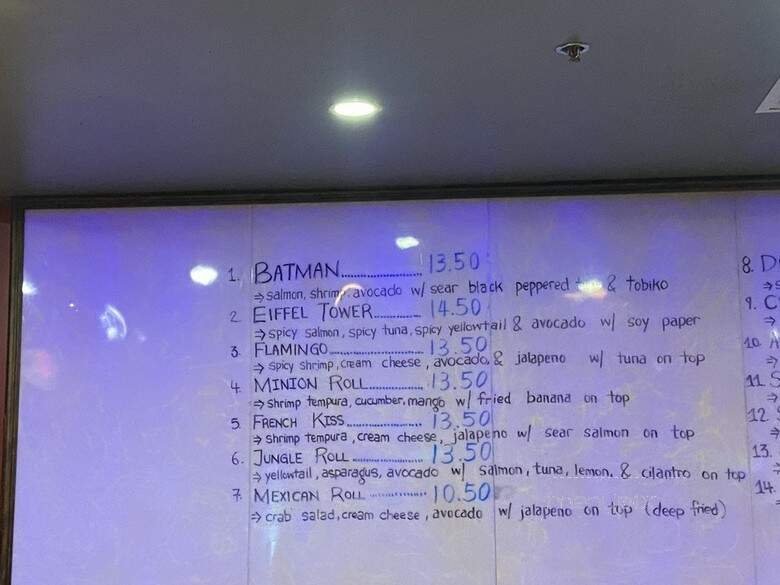 1. BATMAN................ 13.50
→ salmon, shrimp, avocado w/ sear black peppered & tobiko
2 EIFFEL TOWER............ 14.50
→ spicy salmon, spicy tuna, spicy yellowtail & avocado w/ soy paper
3 FLAMINGO................ 13.50
→ spicy shrimp, cream cheese, avocado, & jalapeno w/ tuna on top
4. MINION ROLL............ 13.50
→ shrimp tempura, cucumber, mango w/ fried banana on top
5. FRENCH KISS............ 13.50
→ shrimp tempura, cream cheese, jalapeno w/ sear salmon on top
6. JUNGLE ROLL............ 13.50
→ yellowtail, asparagus, avocado w/ salmon, tuna, lemon, & cilantro on top
7. MEXICAN ROLL............ 10.50
→ crab salad, cream cheese, avocado w/ jalapeno on top (deep fried)
8. D
→ s
9. C
→
10. A
→
11. S
→
12.
→
13.
14.